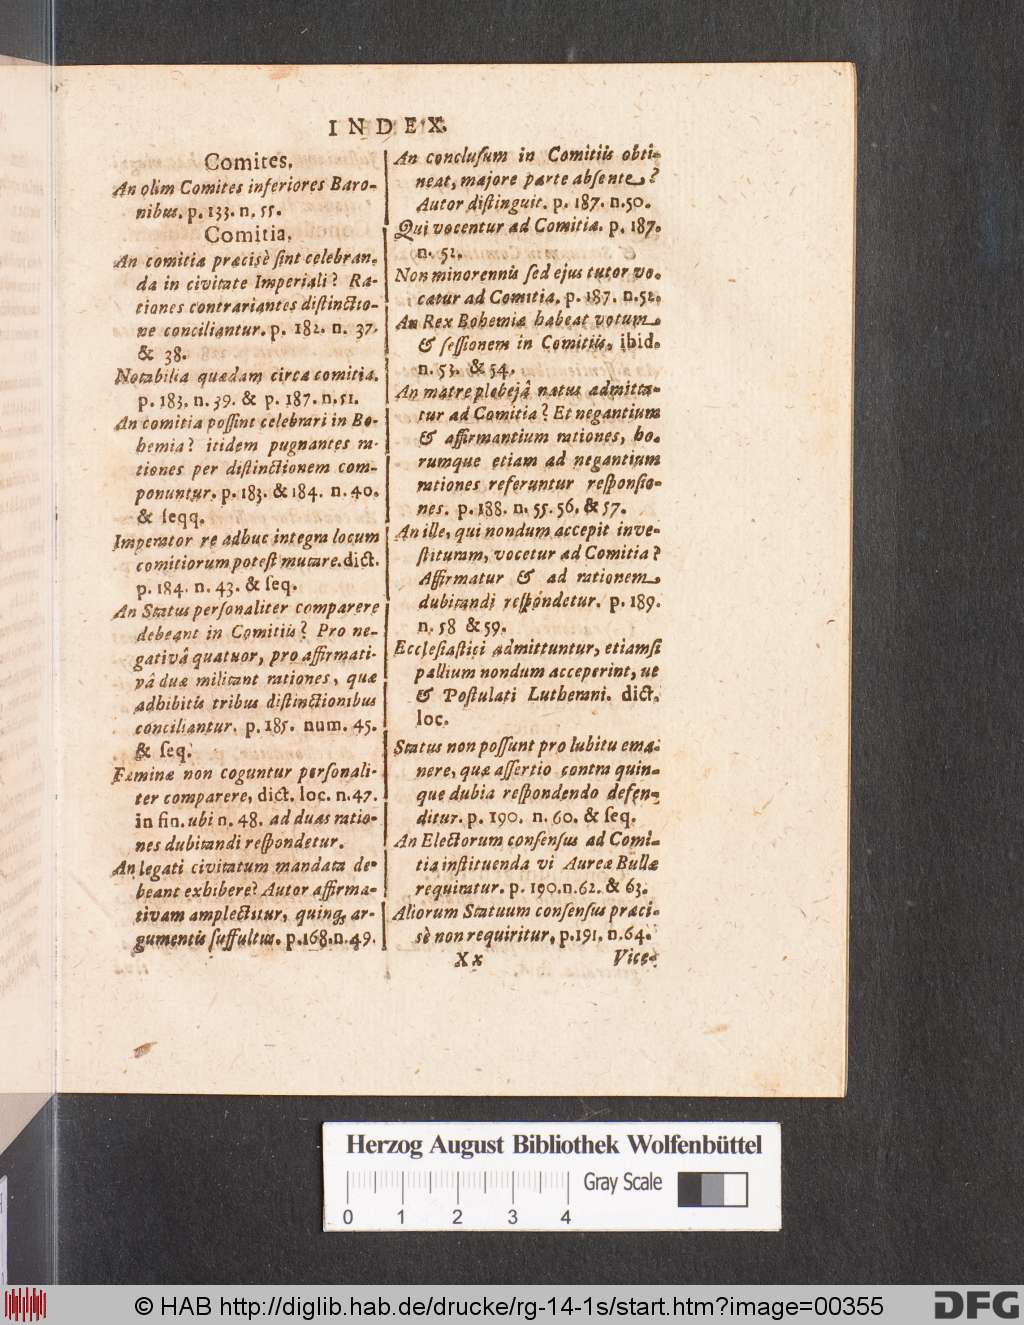 INDEX.
Comites.
An olim Comites inferiores Baro-
nibus. p. 133. n. 55.
Comitia.
An comitia præcisè ſint celebran-
da in civitate Imperiali? Ra-
tiones contrariantes diſtinctio-
ne conciliantur. p. 182. n. 37.
& 38.
Notabilia quædam circa comitia.
p. 183. n. 39. & p. 187. n. 51.
An comitia poſſint celebrari in Bo-
hemia? itidem pugnantes ra-
tiones per diſtinctionem com-
ponuntur. p. 183. & 184. n. 40.
& ſeqq.
Imperator re adhuc integra locum
comitiorum poteſt mutare. dict.
p. 184. n. 43. & ſeq.
An Status perſonaliter comparere
debeant in Comitiis? Pro ne-
gativâ quatuor, pro affirmati-
vâ duæ militant rationes, quæ
adhibitis tribus diſtinctionibus
conciliantur. p. 185. num. 45.
& ſeq.
Fæminæ non coguntur perſonali-
ter comparere, dict. loc. n. 47.
in fin. ubi n. 48. ad duas ratio-
nes dubitandi reſpondetur.
An legati civitatum mandata de-
beant exhibere? Autor affirma-
tivam amplectitur, quinq; ar-
gumentis ſuffultus. p. 168. n. 49.
An concluſum in Comitiis obti-
neat, majore parte abſente?
Autor diſtinguit. p. 187. n. 50.
Qui vocentur ad Comitia. p. 187.
n. 52.
Non minorennis ſed ejus tutor vo-
catur ad Comitia. p. 187. n. 52.
An Rex Bohemiæ habeat votum
& ſeſſionem in Comitiis. ibid.
n. 53. & 54.
An matre plebejâ natus admitta-
tur ad Comitia? Et negantium
& affirmantium rationes, ho-
rumque etiam ad negantium
rationes referuntur reſponſio-
nes. p. 188. n. 55. 56. & 57.
An ille, qui nondum accepit inve-
ſtituram, vocetur ad Comitia?
Affirmatur & ad rationem
dubitandi reſpondetur. p. 189.
n. 58 & 59.
Eccleſiaſtici admittuntur, etiamſi
pallium nondum acceperint, ut
& Poſtulati Lutherani. dict.
loc.
Status non poſſunt pro lubitu ema-
nere, quæ aſſertio contra quin-
que dubia reſpondendo defen-
ditur. p. 190. n. 60. & ſeq.
An Electorum conſenſus ad Comi-
tia inſtituenda vi Aureæ Bullæ
requiratur. p. 190. n. 62. & 63.
Aliorum Statuum conſenſus præci-
sè non requiritur, p. 191. n. 64.
Xx Vice-
Herzog August Bibliothek Wolfenbüttel
Gray Scale
0 1 2 3 4
© HAB http://diglib.hab.de/drucke/rg-14-1s/start.htm?image=00355
DFG